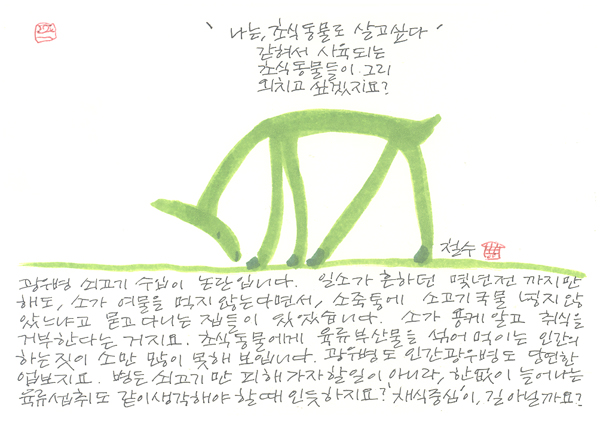 ' 나는, 초식동물로 살고싶다 '
갇혀서 사육되는
초식동물들이 그리
외치고 싶겠지요?
철수
광우병 쇠고기 수입이 논란입니다. 일소가 흔하던 몇년전 까지만
해도, 소가 여물을 먹지않는다면서, 소죽통에 소고기국물 넣지않
았느냐고 묻고다니는 집들이 있었습니다. 소가 용케알고 취식을
거부한다는 거지요. 초식동물에게 육류부산물을 섞어먹이는 인간의
하는짓이 소만 많이 못해 보입니다. 광우병도 인간광우병도 당연한
업보지요. 병든 쇠고기만 피해가자할일이 아니라, 한없이 늘어나는
육류섭취도 같이생각해야 할때 인듯하지요? '채식중심'이, 길 아닐까요?